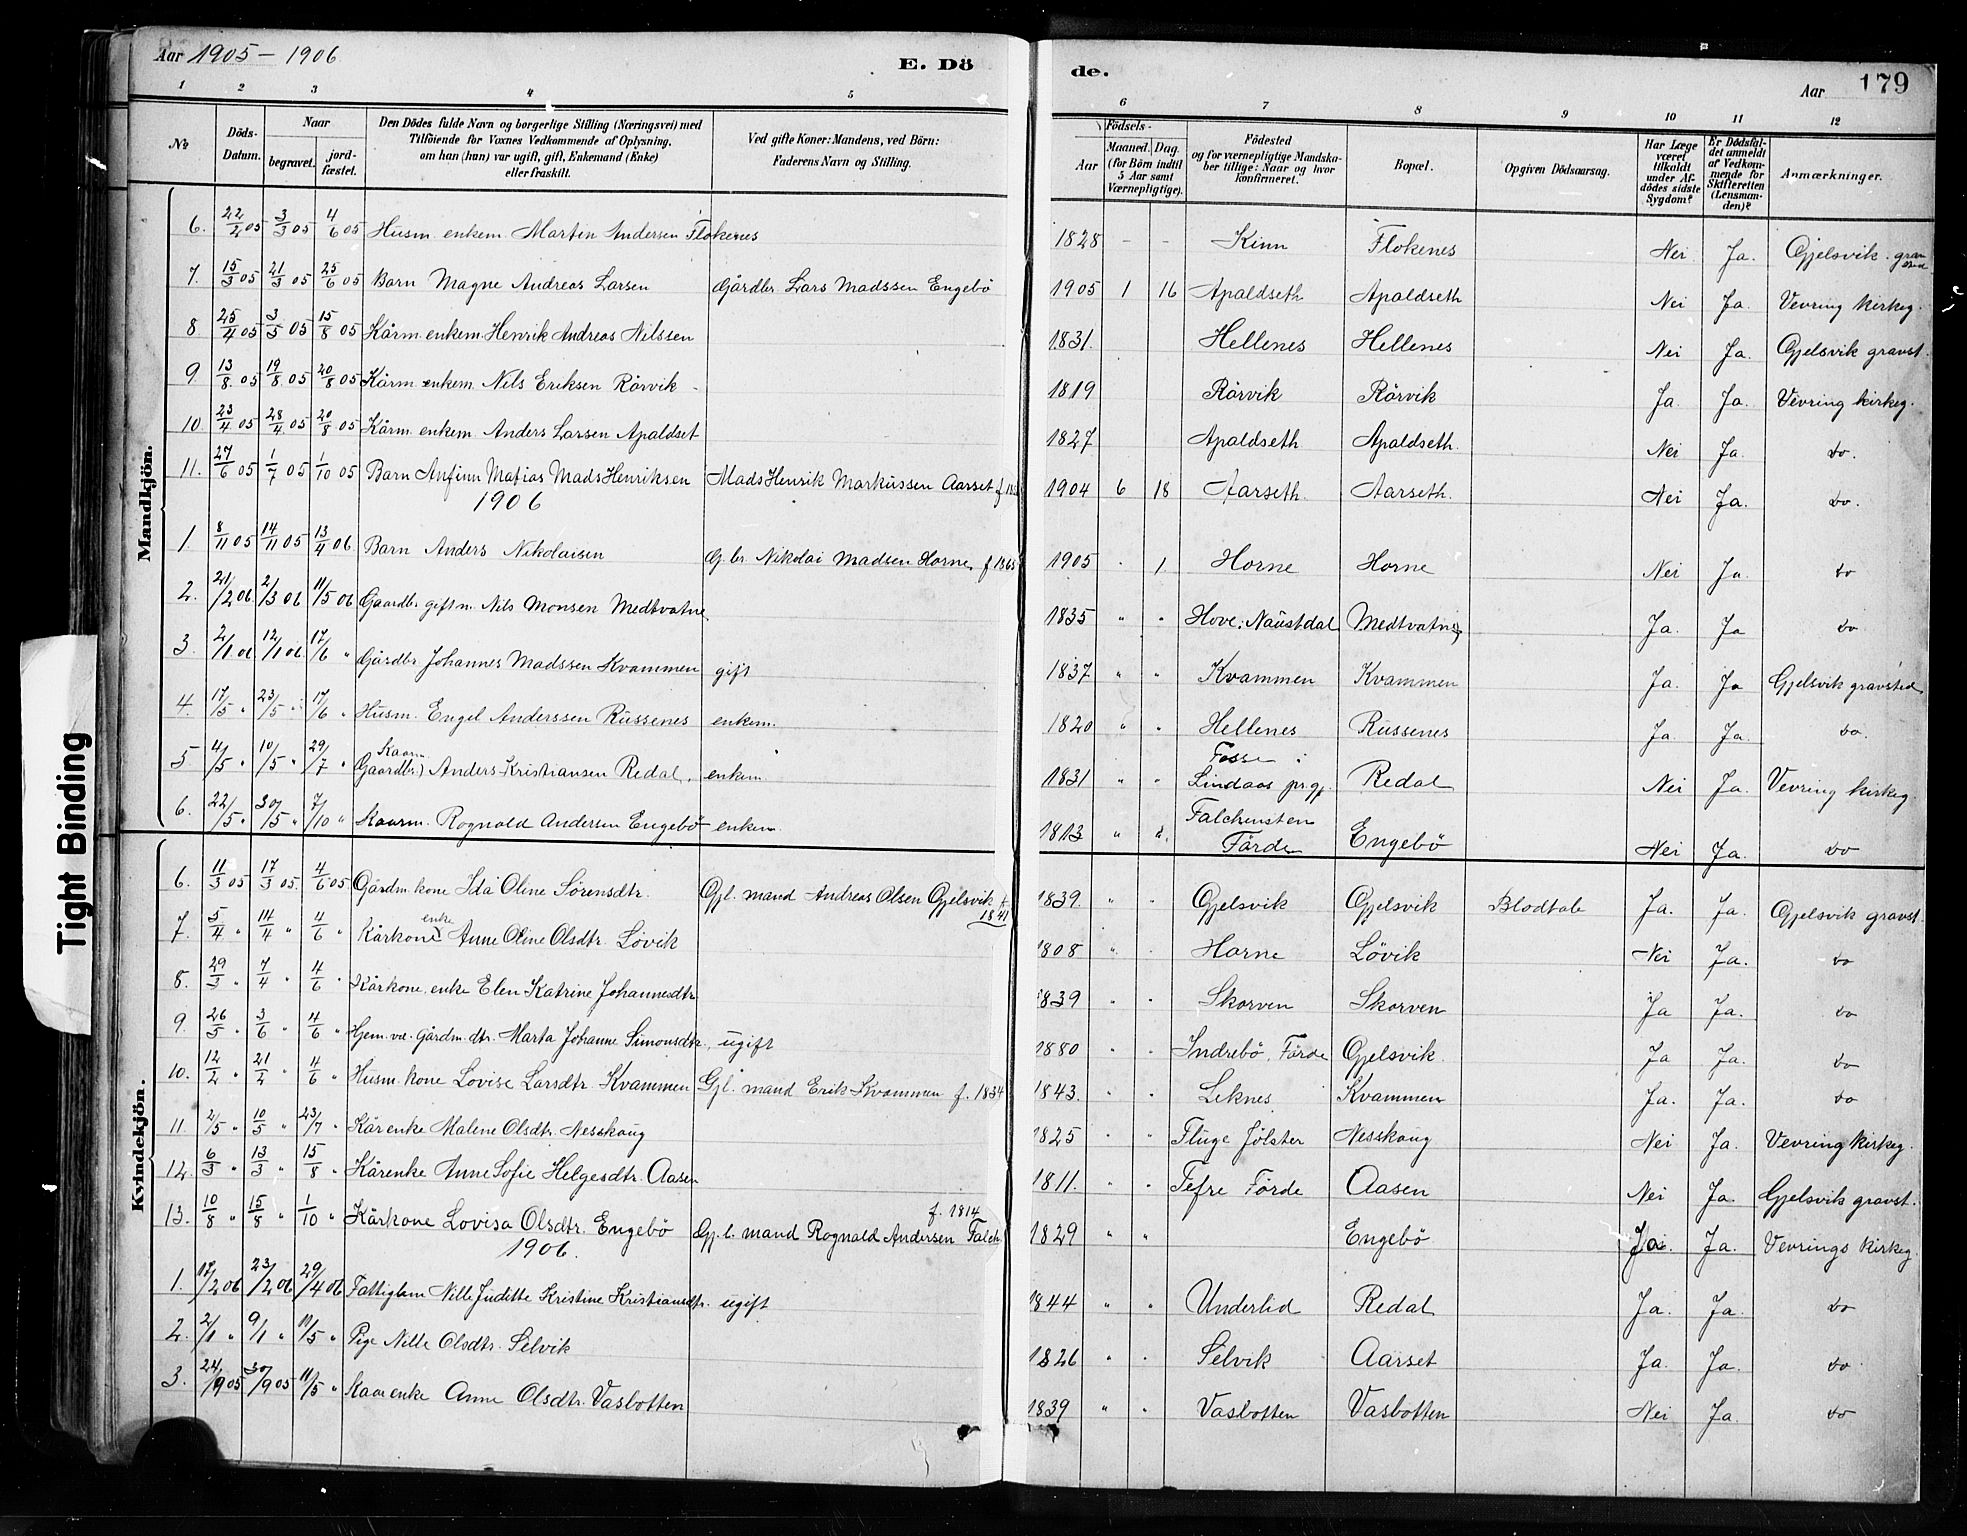 Aar 1905 – 1906
E. Dö de.
Aar 179
1 2 3 4 5 6 7 8 9 10 11 12
№
Döds-Datum.
Naar
begravet.
jord-fæstet.
Den Dödes fulde Navn og borgerlige Stilling (Næringsvei) med
Tilföiende for Voxnes Vedkommende af Oplysning,
om han (hun) var ugift, gift, Enkemand (Enke)
eller fraskilt.
Ved gifte Koner: Mandens, ved Börn:
Faderens Navn og Stilling.
Födsels-
Aar
Maaned. Dag.
(for Börn indtil
5 Aar samt
Værnepligtige).
Födested
og for værnepligtige Mandska-
ber tillige: Naar og hvor
konfirmeret.
Bopæl.
Opgiven Dödsaarsag.
Har Læge
været
tilkaldt
under Af-
dödes sidste
Sygdom?
Er Dödsfal-
det anmeldt
af Vedkom-
mende for
Skifteretten
(Lensman-
den)?
Anmærkninger.
Mandkjön.
6. 22/2 05 3/3 05 4/6 05 Husm. enkem. Marten Andersen Flokenes 1828 - - Kinn Flokenes Nei Ja. Gjelsvik gravsted
7. 15/3 05 21/3 05 25/6 05 Barn Magne Andreas Larsen Gårdbr. Lars Madssen Engebö 1905 1 16 Apaldseth Apaldseth Nei Ja. Vevring kirkeg.
8. 25/4 05 3/5 05 15/8 05 Kårm. enkem. Henrik Andreas Nilssen 1831. Hellenes Hellenes Nei Ja. Gjelsvik gravst.
9 13/8. 05 19/8. 05 20/8 05 Kårm. enkem. Nils Eriksen Rörvik 1819 Rörvik Rörvik Ja. Ja. Vevring kirkeg.
10 23/4 05 28/4. 05 20/8 05 Kårm. enkem. Anders Larsen Apaldset 1827 Apaldseth Apaldseth. Nei Ja. do.
11. 27/6 05 1/7 05 1/10 05 Barn Anfinn Matias Mads Henriksen Mads Henrik Markussen Aarset 1904 6 18 Aarseth. Aarseth. Nei Ja. do.
1906
1 8/11 05 14/11 05 13/4 06 Barn Anders Nikolaisen G. br. Nikolai Madsen Horne, f 1865 1905 . 1. Horne Horne Nei Ja do
2. 21/2 06 2/3 06 11/5 06 Gaardbr. giftm. Nils Monsen Medtvatne. 1835 " " Hove: Naustdal Medtvatne Ja. Ja do
3. 2/1 06 12/1 06. 17/6 " Gårdbr. Johannes Madssen Kvammen gift 1837 " " Kvammen Kvammen Ja. Ja Gjelsvik gravsted
4. 17/5 " 23/5 " 17/6 " Husm. Engel Anderssen Russenes enkem. 1820 " " Hellenes Russenes Ja Ja. do.
5 4/5 " 10/5 " 29/7 " Kaarm (Gaardbr.) Anders Kristiansen Redal, enkem. 1831 " " Fosse i Lindaas prgj. Redal Nei Ja. Vevring kirkeg.
6. 22/5 " 30/5 " 7/10 " Kaarm. Rognald Andersen Engebö enkem. 1813 " " Falchensten Förde Engebö Nei Ja. do
Kvindekjön.
6. 11/3 05 17/3 05. 4/6 05 Gårdm. kone Ida Oline Sörensdtr. Gjl. mand Andreas Olsen Gjelsvik f. 1841 1839. " " Gjelsvik Gjelsvik Blodtab Ja. Ja. Gjelsvik gravst.
7. 5/4 " 14/4 " 4/6 " Kårkone enke Anne Oline Olsdtr. Lövik 1808 " " Horne Lövik Nei Ja. do
8. 29/3 " 7/4 " 4/6 " Kårkone. enke Elen Katrine Johannesdtr. 1839 " " Skorven Skorven Ja Ja. do
9. 26/5 " 3/6 " 4/6 " Hjem. vær. gårdm. dtr. Marta Johanne Simonsdtr., ugift 1880 " " Indrebö, Förde Gjelsvik. Ja Ja. do
10. 12/2 " 21/2 " 4/6 " Husm. kone Lovise Larsdtr. Kvammen Gjl. mand Erik Kvammen f. 1834 1843. " " Leknes Kvammen Ja. Ja. do
11. 2/5 " 10/5 " 23/7 " Kårenke Malene Olsdtr. Nesskaug 1825 " " Fluge Jölster Nesskaug Nei Ja. Vevring kirkeg.
12. 6/3 " 13/3 " 15/8 " Kårenke Anne Sofie Helgesdtr. Aasen 1811. " " Tefre Förde Aasen Nei Ja. Gjelsvik gravst.
13. 10/8 " 15/8 " 1/10 " Kårkone Lovisa Olsdtr. Engebö Gj. l. mand Rognald Andersen Falch f. 1814 1829 " " Engebö Ja. Ja. Vevrings kirkeg.
1906.
1. 17/2 06 23/2 06 29/4 06 Fattiglem Nille Juditte Kristine Kristiansdtr. ugift 1844 " " Underlid Redal Ja. Ja. do
2. 2/1 " 9/1 " 11/5 " Pige Nille Olsdtr. Selvik 1826 " " Selvik Aarset Ja. Ja. do
3. 24/9 05 30/9 05 11/5 " Kaarenke Anne Olsdtr. Vasbotten 1839 " " Vasbotten Vasbotten Nei Ja. do
Tight Binding